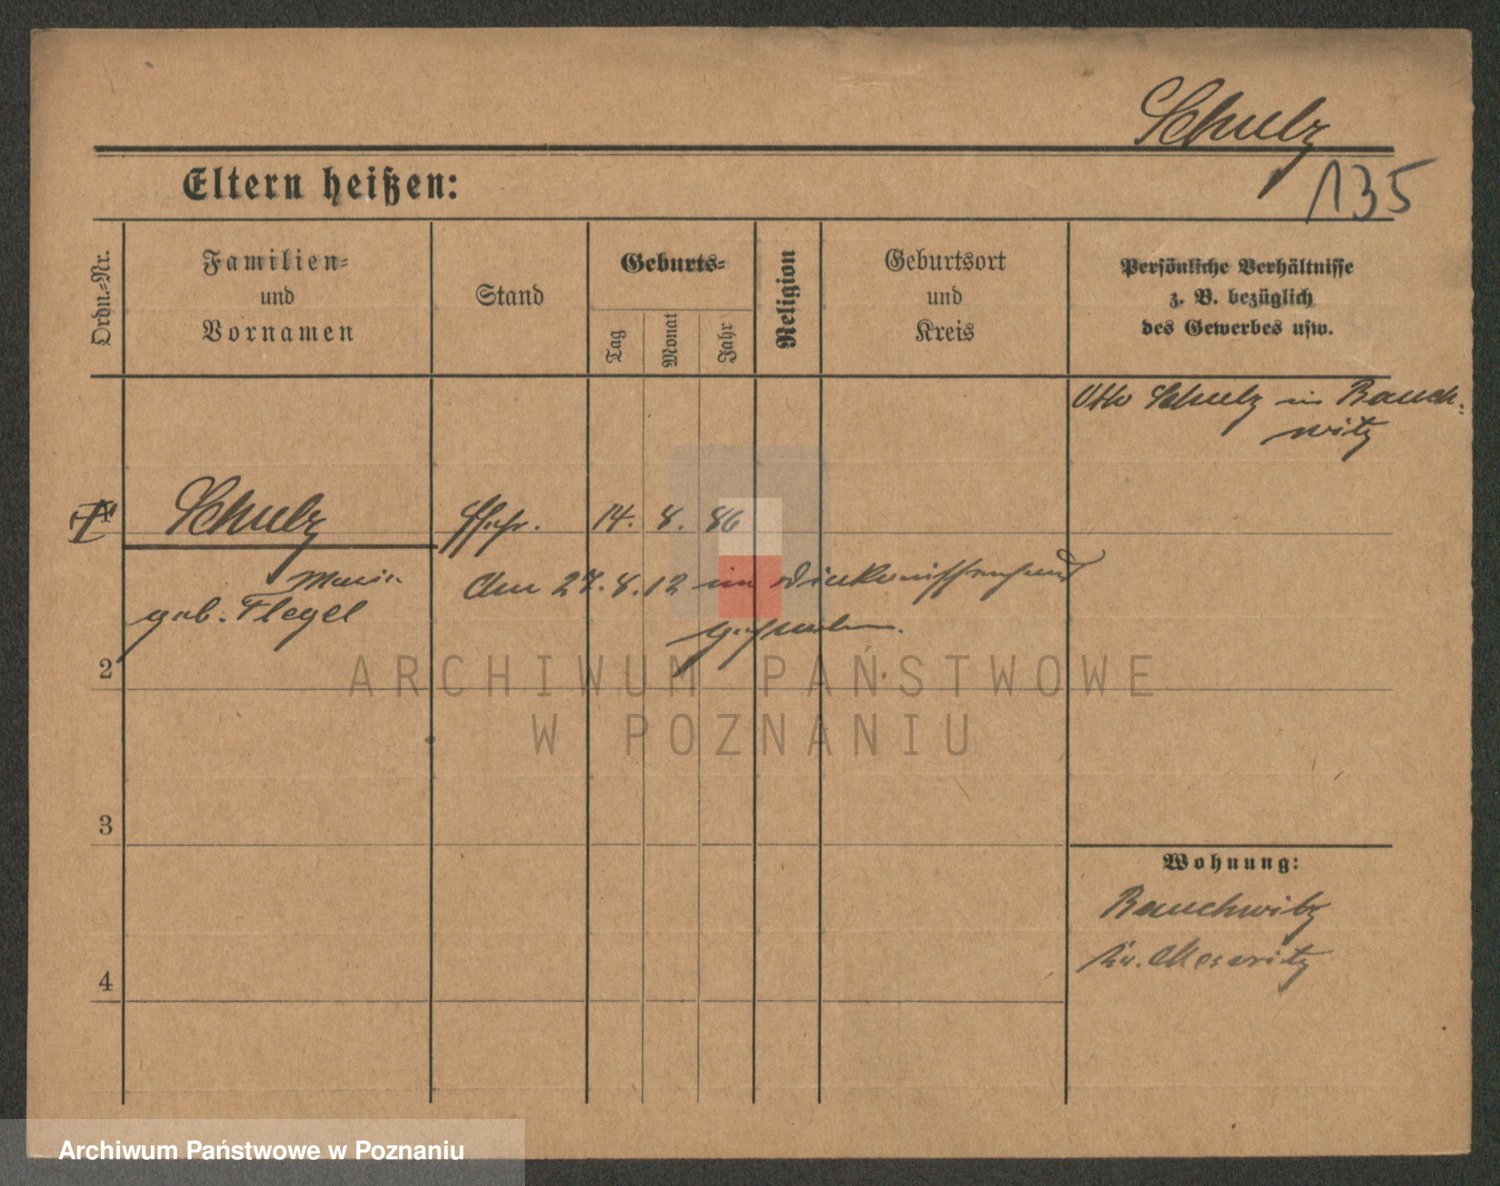 Schulz
135
Eltern heißen:
Ordn.-Nr.
Familien-
und
Vornamen
Stand
Geburts-
Tag
Monat
Jahr
Religion
Geburtsort
und
Kreis
Persönliche Verhältnisse
z. B. bezüglich
des Gewerbes usw.
Otto Schulz in Rauch-
witz
Schulz
Ehefr. 14. 8. 86
Maria
geb. Flegel
Am 27. 8. 12 im Diakonissenhaus
gestorben.
2
ARCHIWUM PAŃSTWOWE
W POZNANIU
3
Wohnung:
Rauchwitz
Kr. Meseritz
4
Archiwum Państwowe w Poznaniu